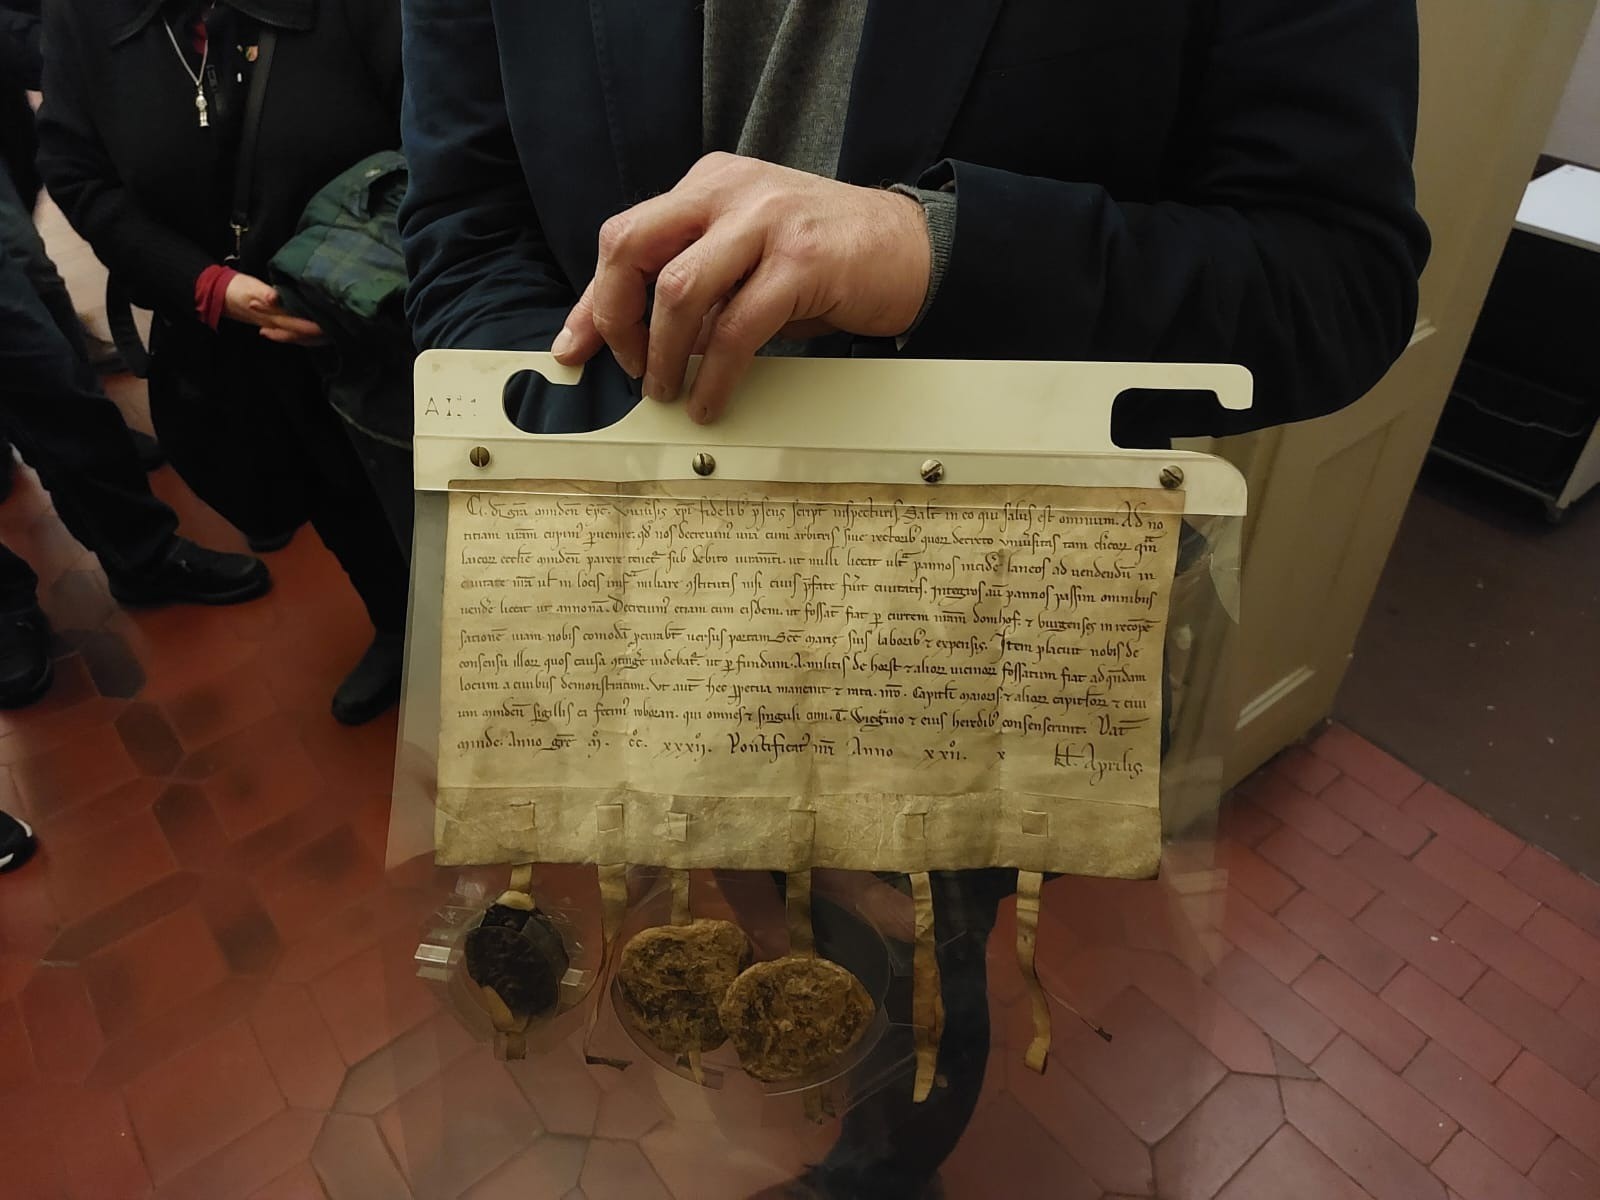 A I
C. dī grā mindeñ Epc. Vniūsis xpī fidelib' p̄sens scriptū inspecturis Salt̄ in eo qui salus est omnium. Ad no
ticiam ur̄am cupim' peruenire. qd' nos decreuim' una cum arbitris siue rectorib' quor decreto vniūsitas tam clicor qm̄
laicor ecclie mindeñ parere tenet' sub debito iuramti. ut nulli liceat ult' pannos incidē laneos ad uendendū in
ciuitate nr̄a ul' in locis infra miliare 9stitutis nisi ciuis p̄fate fūit ciuitatis. Integros aū pannos passim omnibus
uende liceat ut annonā. Decreuim' etiam cum eisdem. ut fossat' fiat p curtem nr̄am domhof. & burgenses in recōpē
sationē uiam nobis comodā pcurabt' uersus portam Sce marie suis laborib' & expensis. Item placuit nobis de
consensu illor quos causa 9tingē uidebat'. ut p fundum. A. militis de horst & alior uicinor fossatum fiat ad qndam
locum a ciuibus demonstratum. Vt aut' hec ppetua maneant & rata. Capitli maioris & alior capitlor & ciui
um mindeñ sigillis ea fecim' roborari. qui omnes & singuli cum. & eius heredib' consenserunt. Dat'
minde. Anno gre m̊. c̊c. xxxii̊. Pontificat' nr̄i Anno xxii̊. x kl. Aprilis.